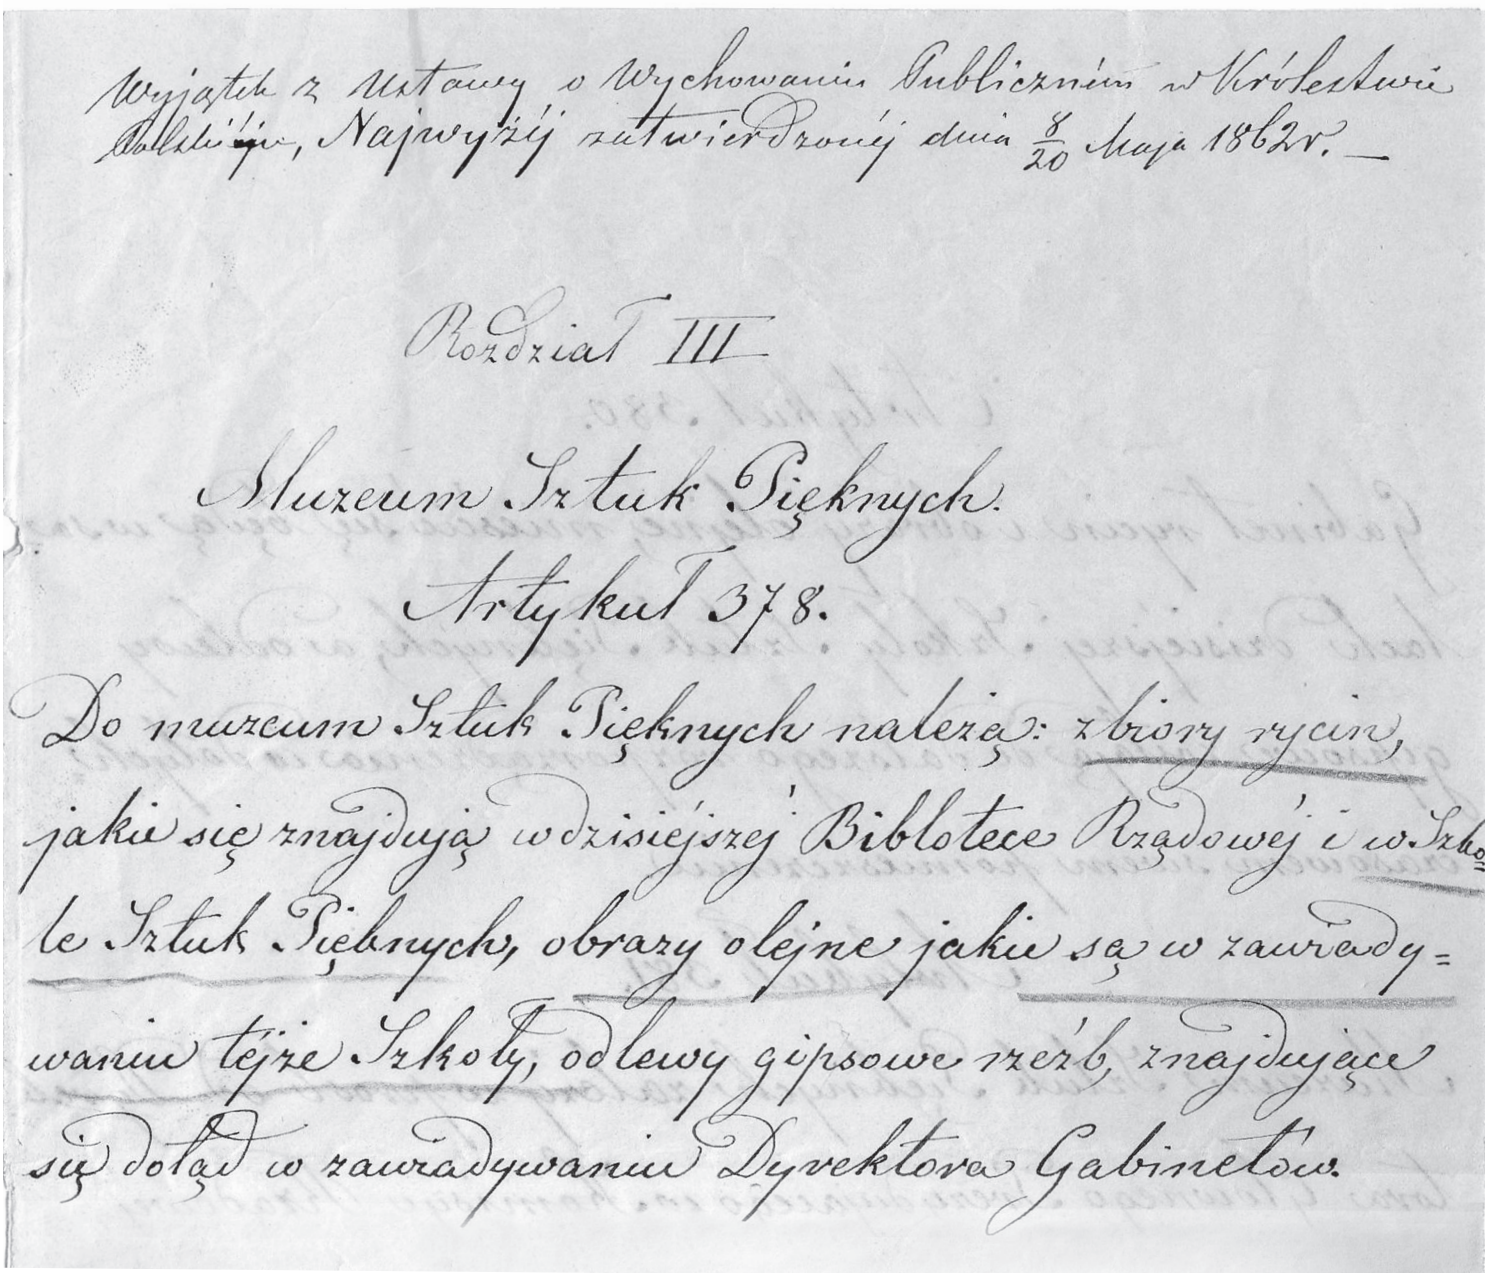 Wyjątek z Ustawy o Wychowaniu Publiczném w Królestwie
Polskiém, Najwyżéj zatwierdzonéj dnia 8/20 Maja 1862 r. —
Rozdział III
Muzeum Sztuk Pięknych.
Artykuł 378.
Do muzeum Sztuk Pięknych należą: zbiory rycin,
jakie się znajdują w dzisiéjszéj Biblotece Rządowéj i w Szko=
le Sztuk Pięknych, obrazy olejne jakie są w zawiady=
waniu téjże Szkoły, odlewy gipsowe rzeźb, znajdujące
się dotąd w zawiadywaniu Dyrektora Gabinetów.